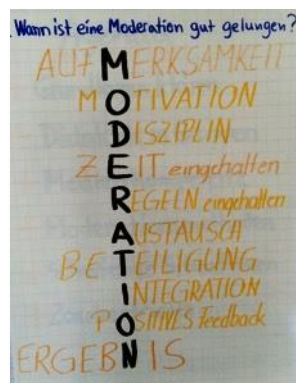 Wann ist eine Moderation gut gelungen?
AUFMERKSAMKEIT
MOTIVATION
DISZIPLIN
ZEIT eingehalten
REGELN eingehalten
AUSTAUSCH
BETEILIGUNG
INTEGRATION
POSITIVES Feedback
ERGEBNIS